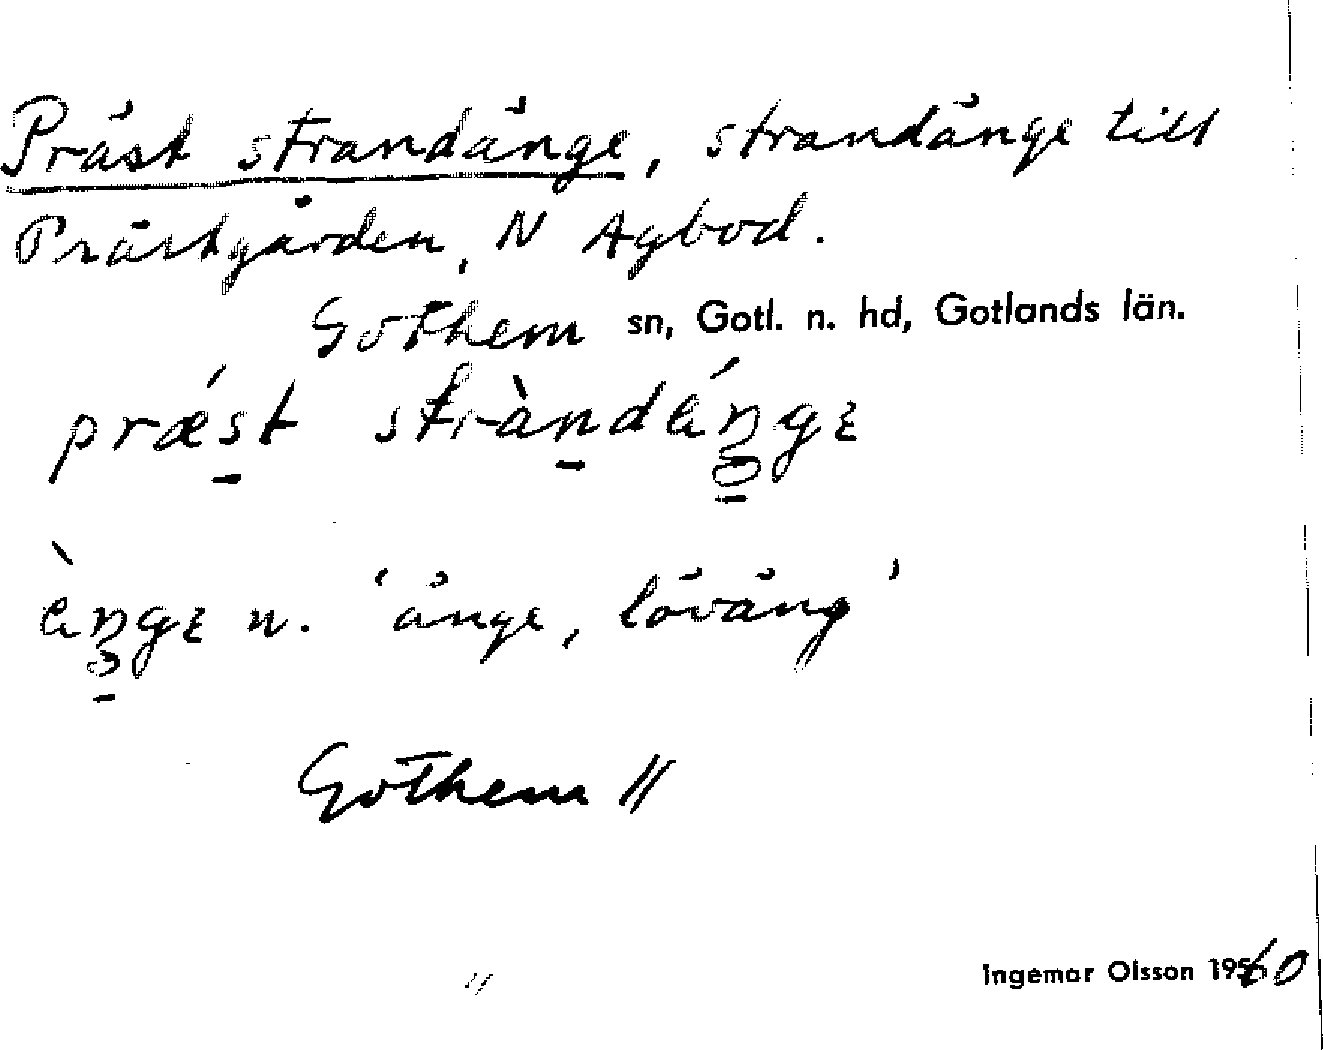 Präst strandänge, strandänge till
Prästgården, N Agbod.
Gothem sn, Gotl. n. hd, Gotlands län.
præ´st stràndéŋgɛ
èŋgɛ n. 'änge, löväng'
Gothem //
"
Ingemar Olsson 1960